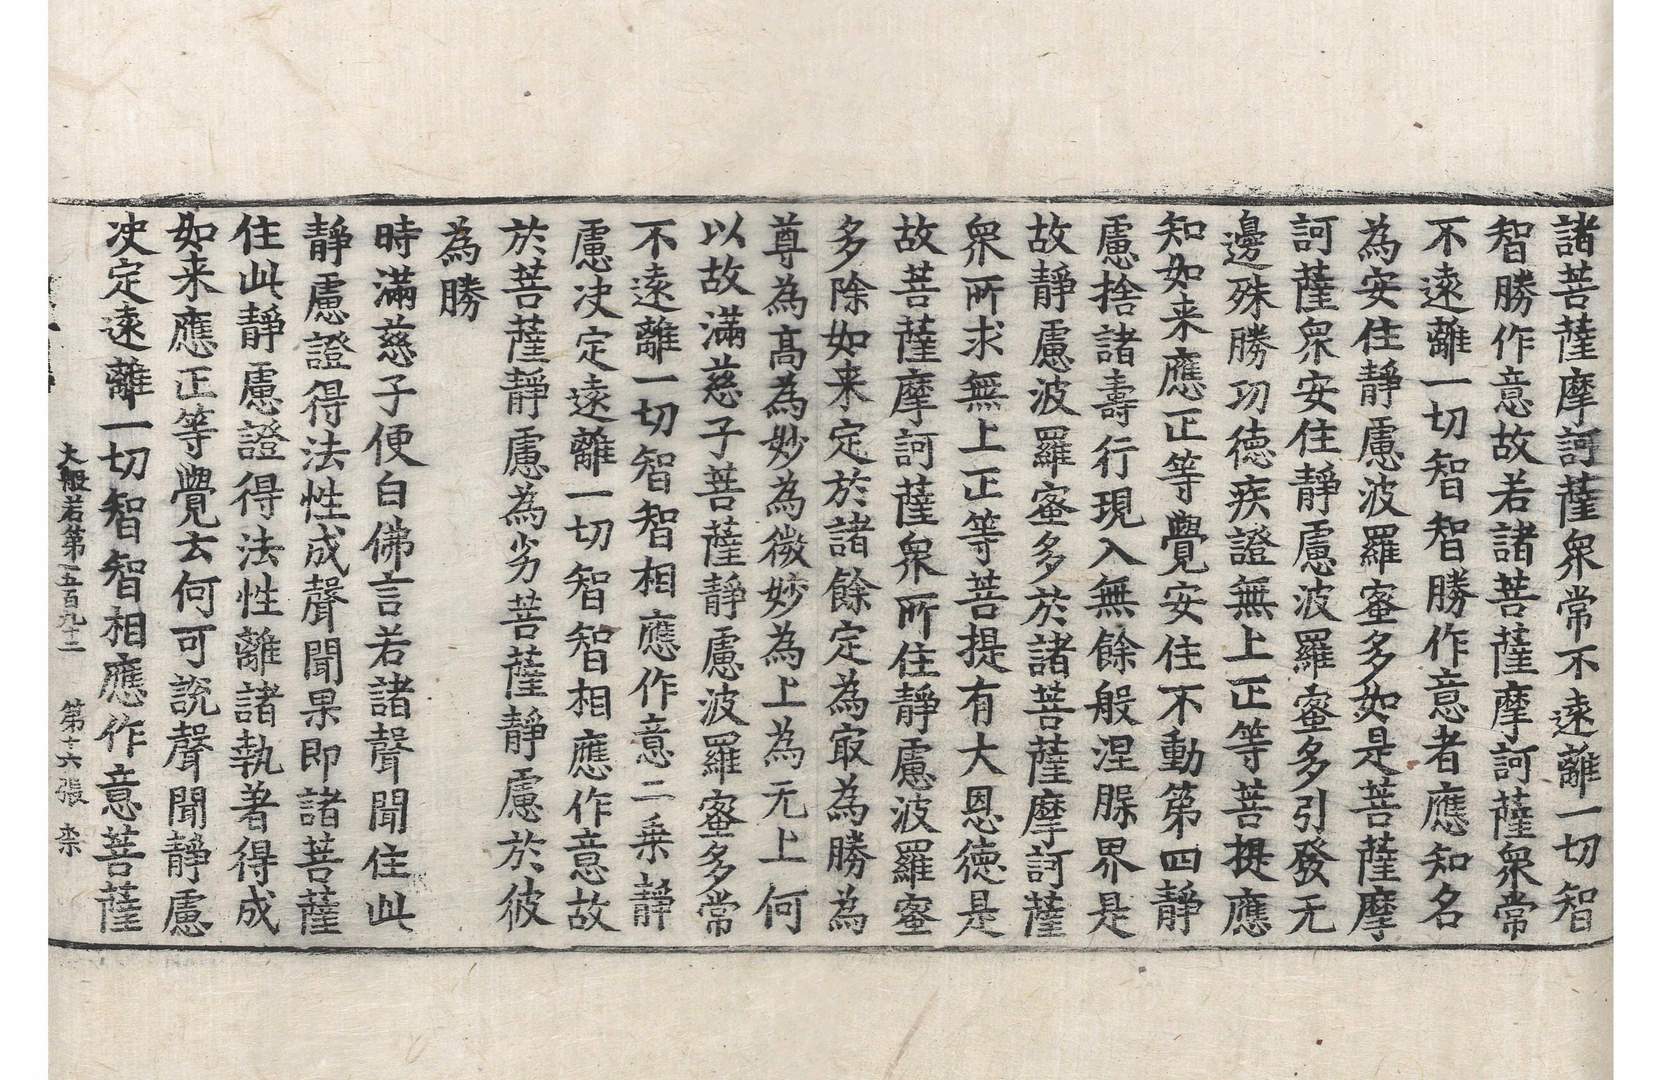 諸菩薩摩訶薩衆常不遠離一切智
智勝作意故若諸菩薩摩訶薩衆常
不遠離一切智智勝作意者應知名
為安住靜慮波羅蜜多如是菩薩摩
訶薩衆安住靜慮波羅蜜多引發无
邊殊勝功德疾證無上正等菩提應
知如来應正等覺安住不動第四靜
慮捨諸壽行現入無餘般涅槃界是
故靜慮波羅蜜多於諸菩薩摩訶薩
衆所求無上正等菩提有大恩德是
故菩薩摩訶薩衆所住靜慮波羅蜜
多除如来定於諸餘定為冣為勝為
尊為高為妙為微妙為上為无上何
以故滿慈子菩薩靜慮波羅蜜多常
不遠離一切智智相應作意二乗靜
慮决定遠離一切智智相應作意故
於菩薩靜慮為劣菩薩靜慮於彼
為勝
時滿慈子便白佛言若諸聲聞住此
靜慮證得法性成聲聞果即諸菩薩
住此靜慮證得法性離諸執著得成
如来應正等覺云何可說聲聞靜慮
决定遠離一切智智相應作意菩薩
大般若第五百九十二 第十六張 柰